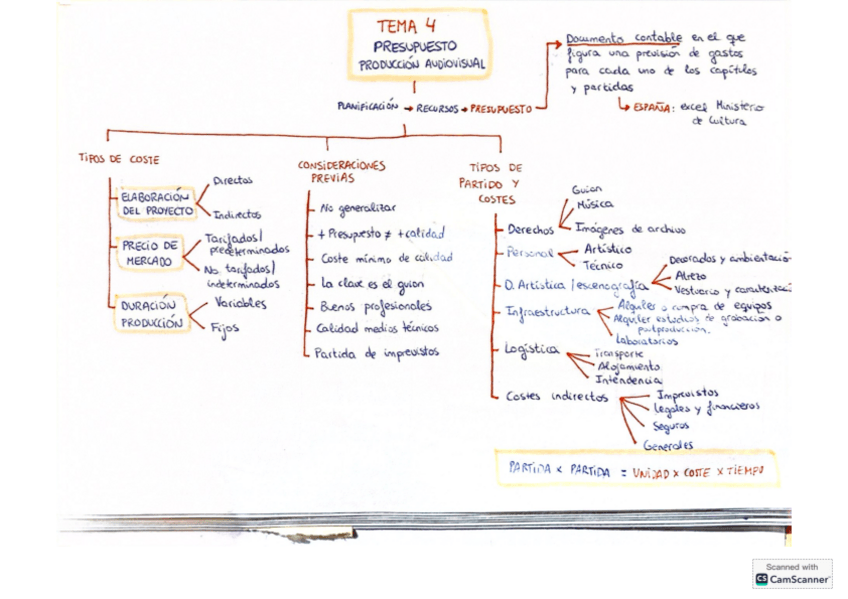 TEMA 4
PRESUPUESTO
PRODUCCIÓN AUDIOVISUAL
Documento contable en el que
figura una previsión de gastos
para cada uno de los capítulos
y partidas
ESPAÑA: excel Ministerio
de Cultura
PLANIFICACIÓN → RECURSOS → PRESUPUESTO
TIPOS DE COSTE
ELABORACIÓN
DEL PROYECTO
Directos
Indirectos
PRECIO DE
MERCADO
Tarifados/
predeterminados
No tarifados/
indeterminados
DURACIÓN
PRODUCCIÓN
Variables
Fijos
CONSIDERACIONES
PREVIAS
No generalizar
+ Presupuesto ≠ + calidad
Coste mínimo de calidad
La clave es el guion
Buenos profesionales
Calidad medios técnicos
Partida de imprevistos
TIPOS DE
PARTIDO Y
COSTES
Derechos
Guion
Música
Imágenes de archivo
Personal
Artístico
Técnico
D. Artística / escenografía
Decorados y ambientación
Atrezo
Vestuario y caracterizaci
Infraestructura
Alquiler o compra de equipos
Alquiler estudios de grabación o
postproducción.
Laboratorios
Logística
Transporte
Alojamiento
Intendencia
Costes indirectos
Imprevistos
Legales y financieros
Seguros
Generales
PARTIDA × PARTIDA = UNIDAD × COSTE × TIEMPO
Scanned with
CS CamScanner